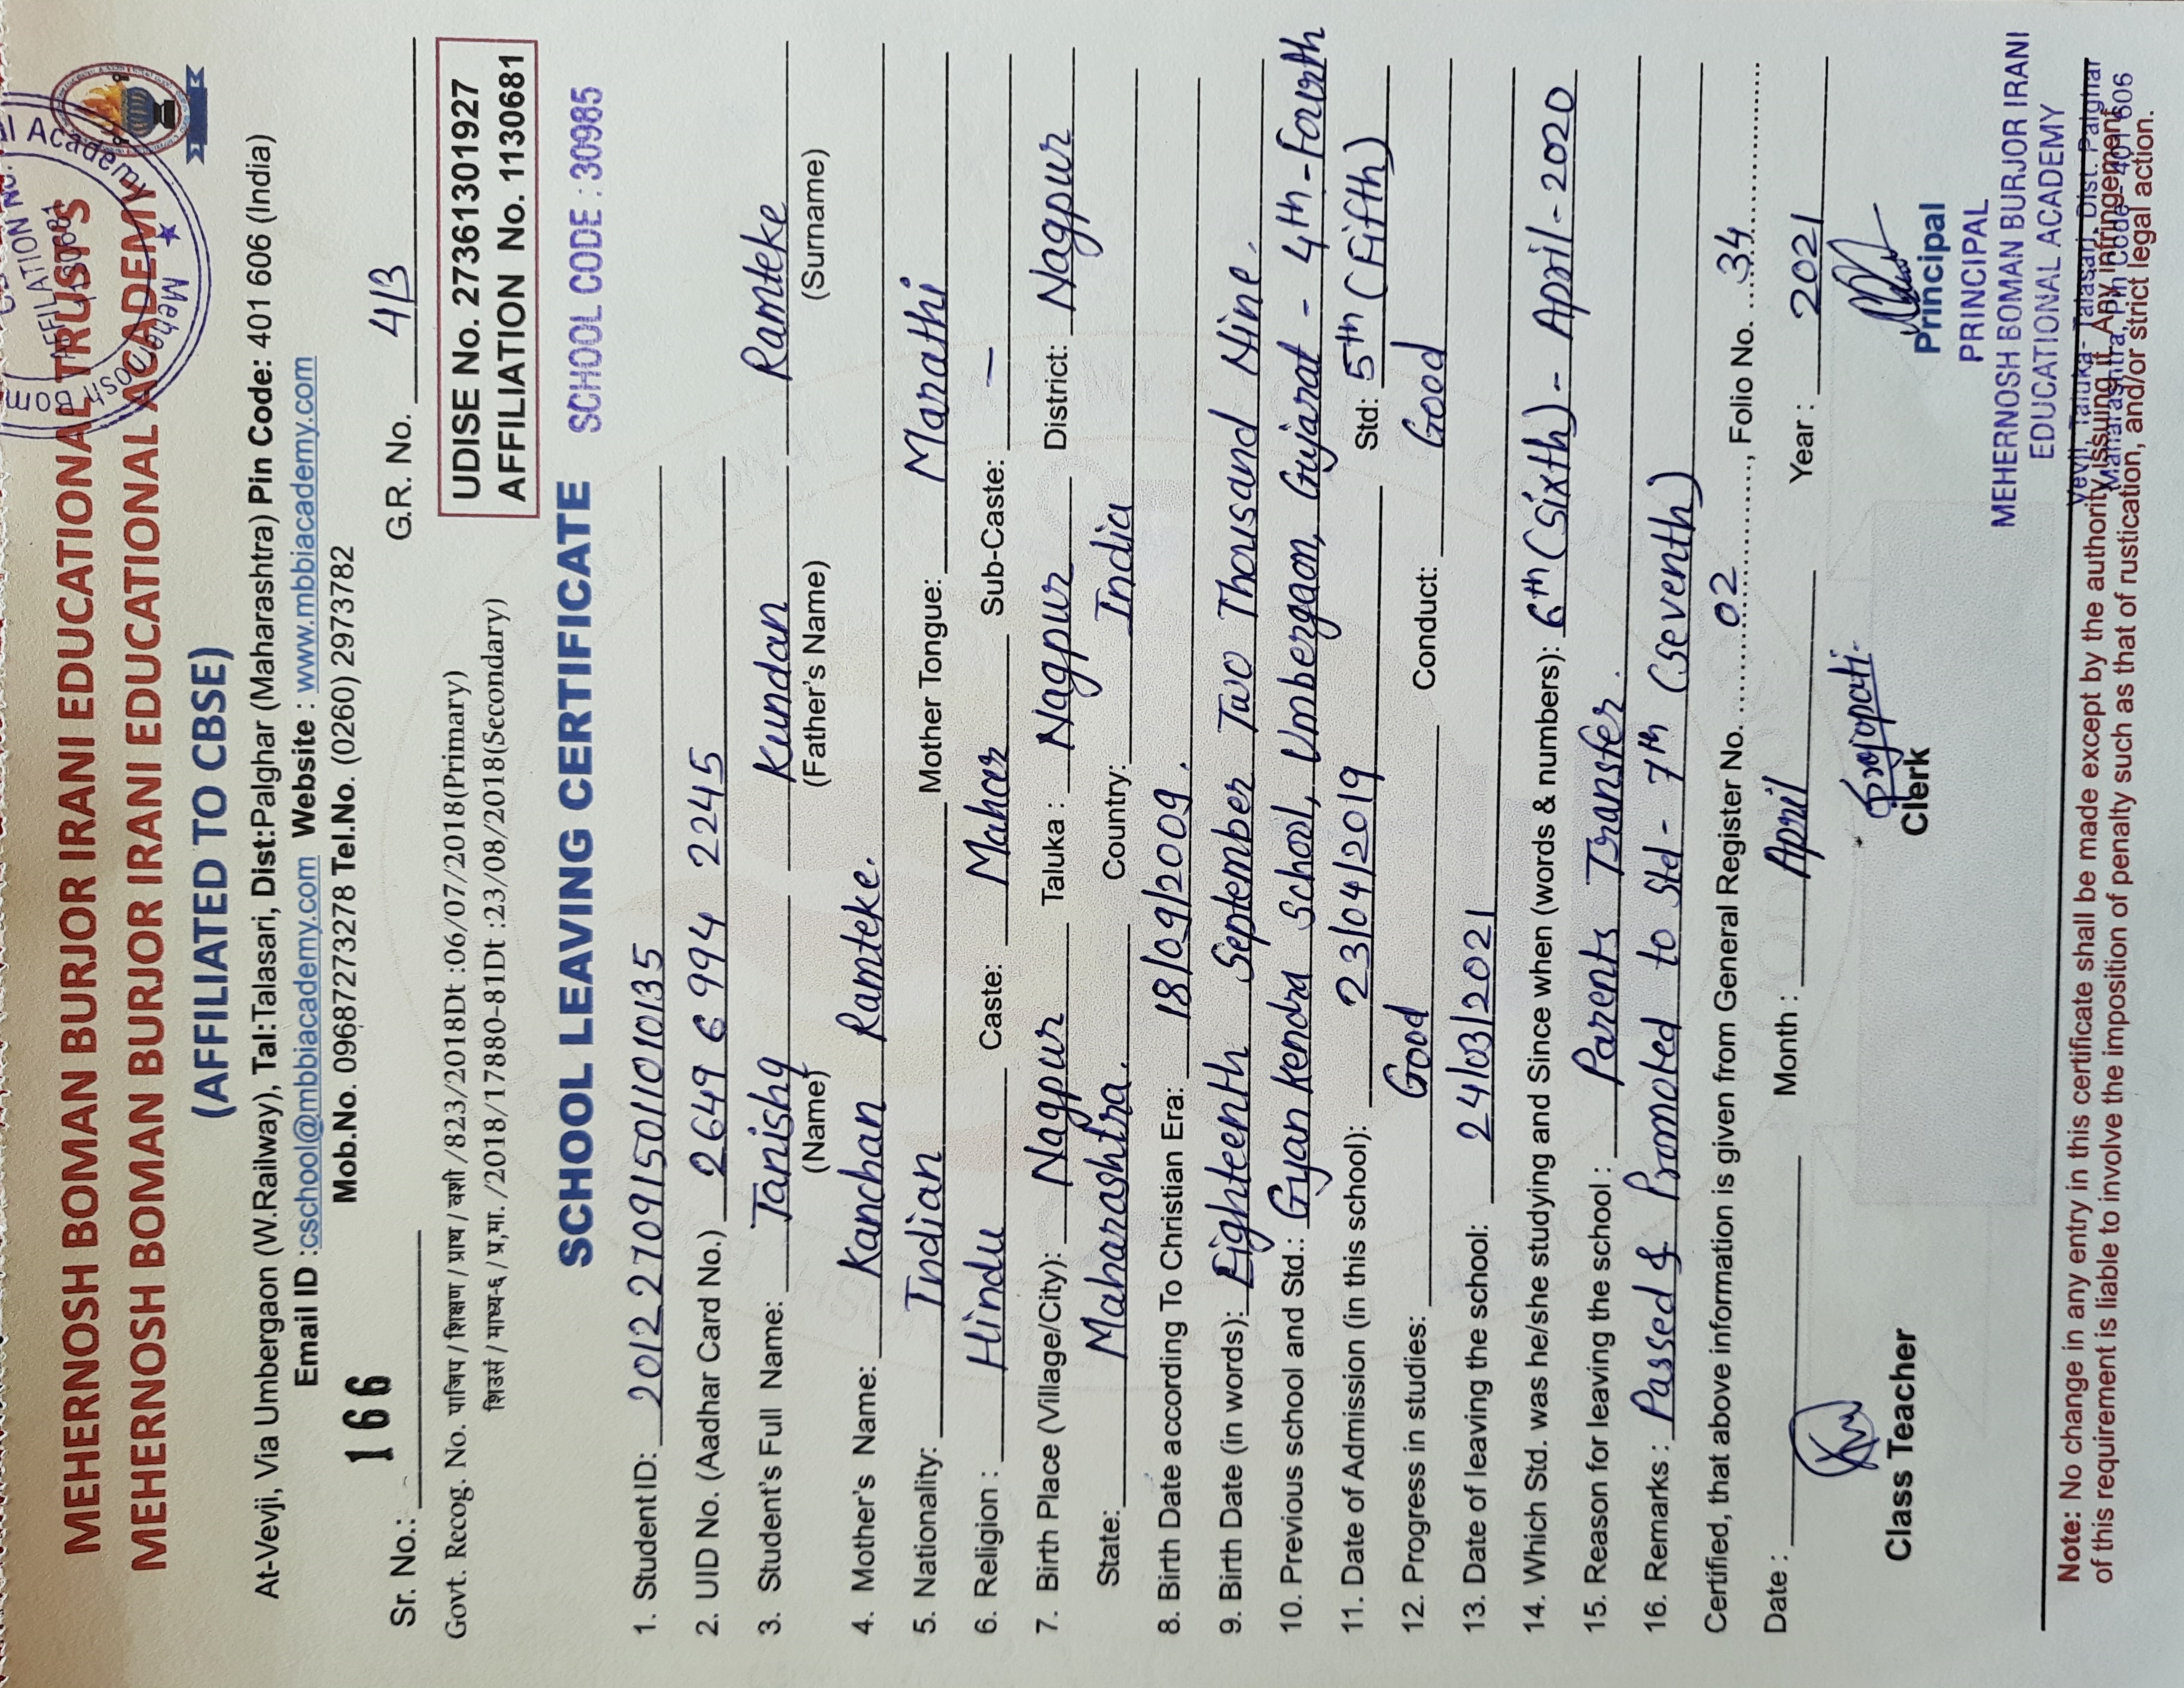 MEHERNOSH BOMAN BURJOR IRANI EDUCATIONAL TRUST'S
MEHERNOSH BOMAN BURJOR IRANI EDUCATIONAL ACADEMY
(AFFILIATED TO CBSE)
At-Vevji, Via Umbergaon (W.Railway), Tal:Talasari, Dist:Palghar (Maharashtra) Pin Code: 401 606 (India)
Email ID :cschool@mbbiacademy.com Website : www.mbbiacademy.com
Mob.No. 09687273278 Tel.No. (0260) 2973782
Sr. No.: 166 G.R. No. 413
Govt. Recog. No. पाजिप / शिक्षण / प्राथ / वशी /823/2018Dt :06/07/2018(Primary)
शिउसं / माध्य-६ / प्र,मा. /2018/17880-81Dt :23/08/2018(Secondary)
UDISE No. 27361301927
AFFILIATION No. 1130681
SCHOOL LEAVING CERTIFICATE SCHOOL CODE : 30985
1. Student ID: 2012270915011010135
2. UID No. (Aadhar Card No.) 2649 6994 2245
3. Student's Full Name: Tanishq Kundan Ramteke
(Name) (Father's Name) (Surname)
4. Mother's Name: Kanchan Ramteke.
5. Nationality: Indian Mother Tongue: Marathi
6. Religion : Hindu Caste: Mahar Sub-Caste: —
7. Birth Place (Village/City): Nagpur Taluka : Nagpur District: Nagpur
State: Maharashtra. Country: India
8. Birth Date according To Christian Era: 18/09/2009.
9. Birth Date (in words): Eighteenth September Two Thousand Nine.
10. Previous school and Std.: Gyan Kendra School, Umbergaon, Gujarat - 4th - Fourth
11. Date of Admission (in this school): 23/04/2019 Std: 5th (Fifth)
12. Progress in studies: Good Conduct: Good
13. Date of leaving the school: 24/03/2021
14. Which Std. was he/she studying and Since when (words & numbers): 6th (Sixth) - April - 2020
15. Reason for leaving the school : Parents Transfer.
16. Remarks : Passed & Promoted to Std - 7th (Seventh)
Certified, that above information is given from General Register No. ........02........, Folio No. ...34...
Date : Month : April Year : 2021
Class Teacher Clerk Principal
PRINCIPAL
MEHERNOSH BOMAN BURJOR IRANI
EDUCATIONAL ACADEMY
Vevji, Taluka- Talasari, Dist. Palghar
Maharashtra, Pin Code- 401 606
Note: No change in any entry in this certificate shall be made except by the authority issuing it. Any infringement
of this requirement is liable to involve the imposition of penalty such as that of rustication, and/or strict legal action.